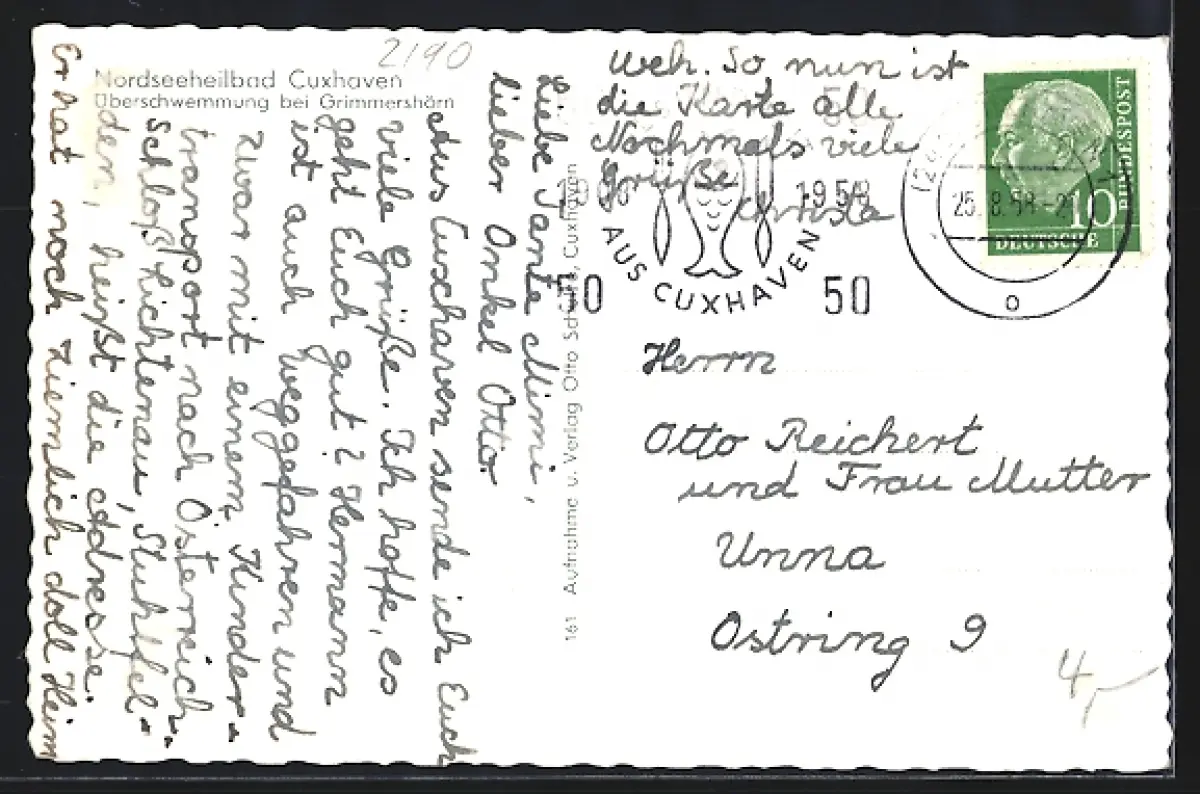 Nordseeheilbad Cuxhaven
Überschwemmung bei Grimmershörn
2190
Liebe Tante Mimi,
lieber Onkel Otto
Aus Cuxhaven sende ich Euch
viele Grüße. Ich hoffe, es
geht Euch gut? Hermann
ist auch weggefahren und
zwar mit einem Kinder-
transport nach Österreich
Schloß Lichtenau, Stuhlfel-
den, heißt die Adresse.
Er hat noch ziemlich doll Heim
weh. So nun ist
die Karte alle
Nochmals viele
Grüße
Christa
161 Aufnahme u. Verlag Otto Cuxhaven
1908 1958
AUS CUXHAVEN
50 50
25.8.58
10
DEUTSCHE
BUNDESPOST
Herrn
Otto Reichert
und Frau Mutter
Unna
Ostring 9
4,-